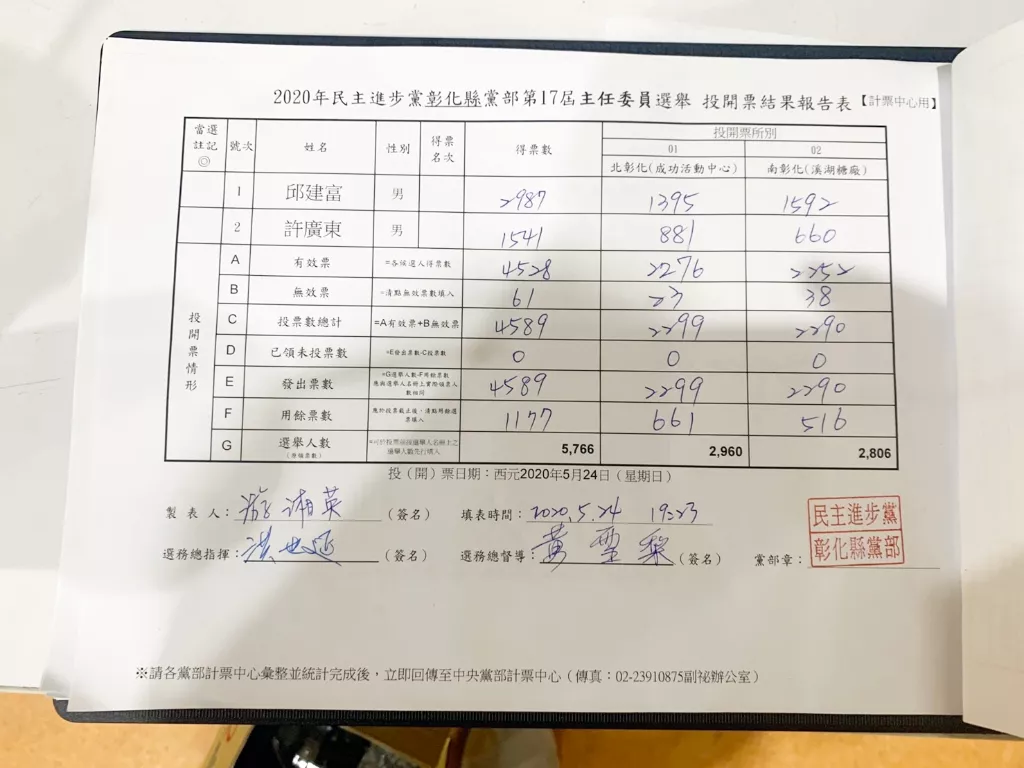 2020年民主進步黨彰化縣黨部第17屆主任委員選舉 投開票結果報告表【計票中心用】
當選註記◎ 號次 姓名 性別 得票名次 得票數 投開票所別
01 02
北彰化(成功活動中心) 南彰化(溪湖糖廠)
1 邱建富 男 2987 1395 1592
2 許廣東 男 1541 881 660
投開票情形
A 有效票 =各候選人得票數 4528 2276 2252
B 無效票 =清點無效票數填入 61 23 38
C 投票數總計 =A有效票+B無效票 4589 2299 2290
D 已領未投票數 =E發出票數-C投票數 0 0 0
E 發出票數 =G選舉人數-F用餘票數 應與選舉人名冊上實際領票人數相同 4589 2299 2290
F 用餘票數 應於投票截止後，清點用餘選票填入 1177 661 516
G 選舉人數 (應領票數) 5,766 2,960 2,806
投（開）票日期：西元2020年5月24日（星期日）
製表人：游湘英（簽名） 填表時間：2020.5.24 19:23
選務總指揮：（簽名） 選務總督導：黃（簽名） 黨部章：
民主進步黨
彰化縣黨部
※請各黨部計票中心彙整並統計完成後，立即回傳至中央黨部計票中心（傳真：02-23910875副祕辦公室）